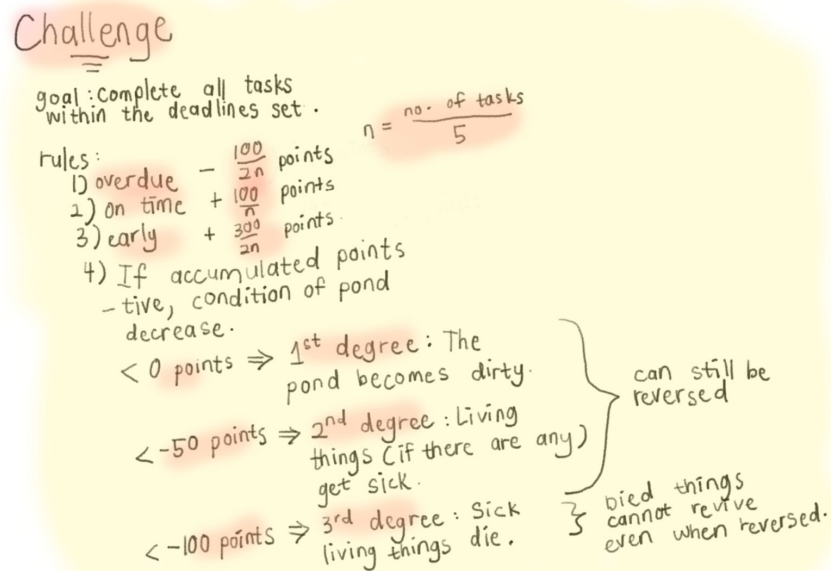 Challenge
goal : Complete all tasks
within the deadlines set .
n = no. of tasks / 5
rules :
1) overdue - 100/2n points
2) on time + 100/n points
3) early + 300/2n points.
4) If accumulated points
-tive, condition of pond
decrease.
< 0 points ⇒ 1st degree : The
pond becomes dirty.
< -50 points ⇒ 2nd degree : Living
things (if there are any)
get sick.
can still be
reversed
< -100 points ⇒ 3rd degree : Sick
living things die.
Died things
cannot revive
even when reversed.